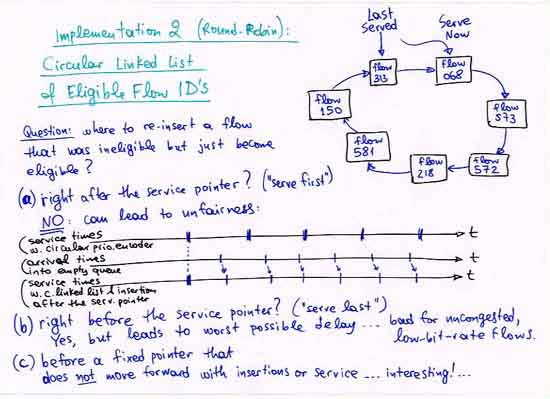 Implementation 2 (Round-Robin):
Circular Linked List
of Eligible Flow ID's
Last
Served
Serve
Now
flow
313
flow
068
flow
573
flow
572
flow
218
flow
581
flow
150
Question: where to re-insert a flow
that was ineligible but just become
eligible?
(a) right after the service pointer? ("serve first")
NO: can lead to unfairness:
(service times
w. circular prio. encoder
t
(arrival times
into empty queue
t
(service times
w. c. linked list & insertion
after the serv. pointer
t
(b) right before the service pointer? ("serve last")
Yes, but leads to worst possible delay ... bad for uncongested,
low-bit-rate flows.
(c) before a fixed pointer that
does not move forward with insertions or service ... interesting!...